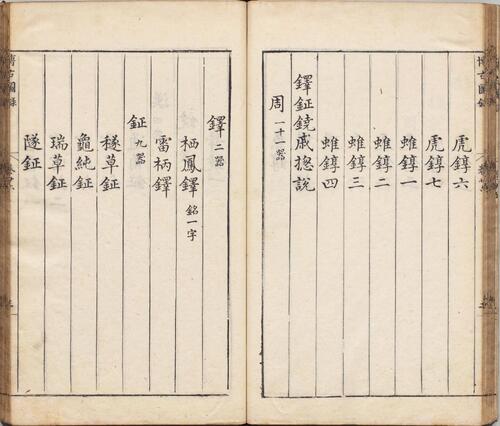 虎錞六
虎錞七
蜼錞一
蜼錞二
蜼錞三
蜼錞四
鐸鉦鐃戚摠說
周一十一器
鐸二器
栖鳳鐸銘一字
雷柄鐸
鉦九器
穟草鉦
龜純鉦
瑞草鉦
隧鉦
博古圖錄